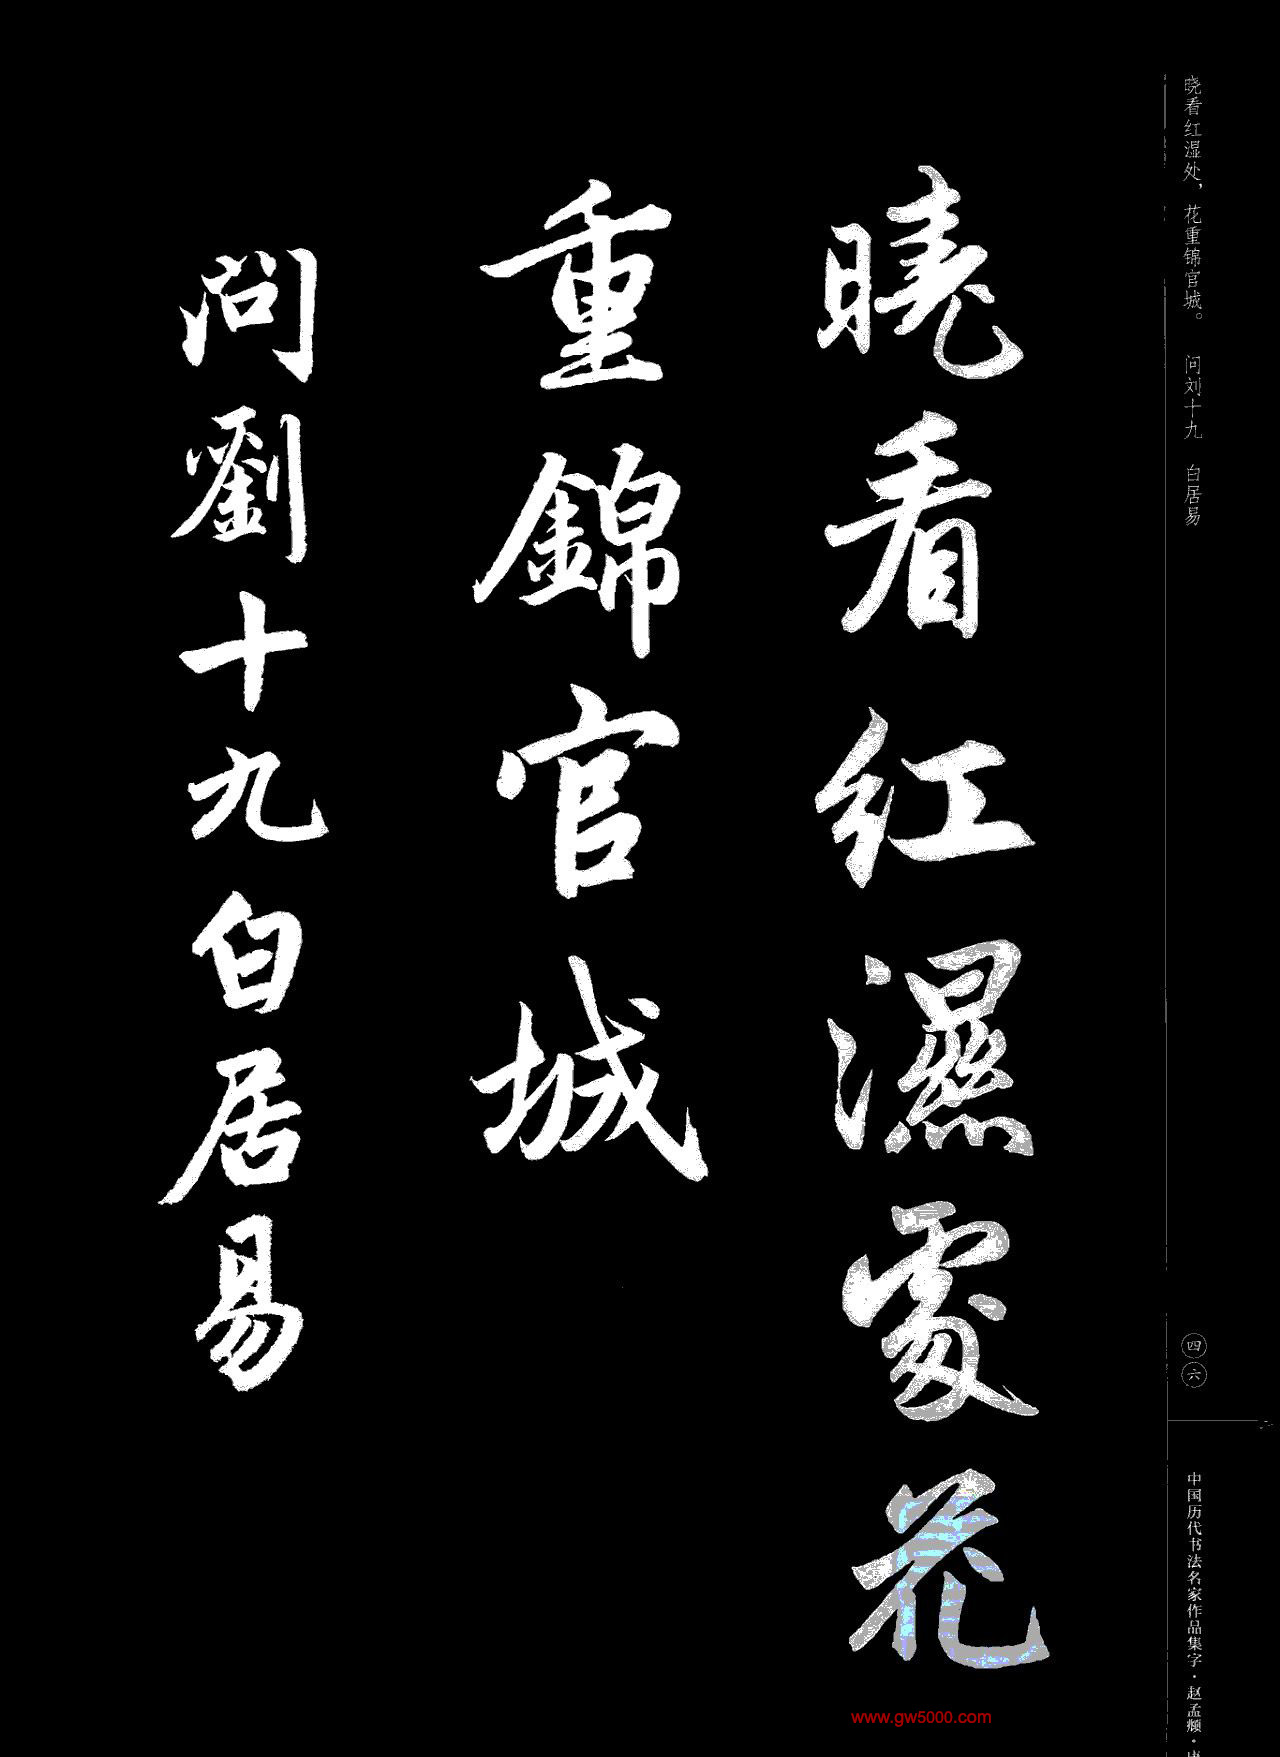 晓看红湿处，花重锦官城。 问刘十九 白居易
曉看红濕處花
重錦官城
問劉十九白居易
四六
中国历代书法名家作品集字·赵孟頫·
www.gw5000.com